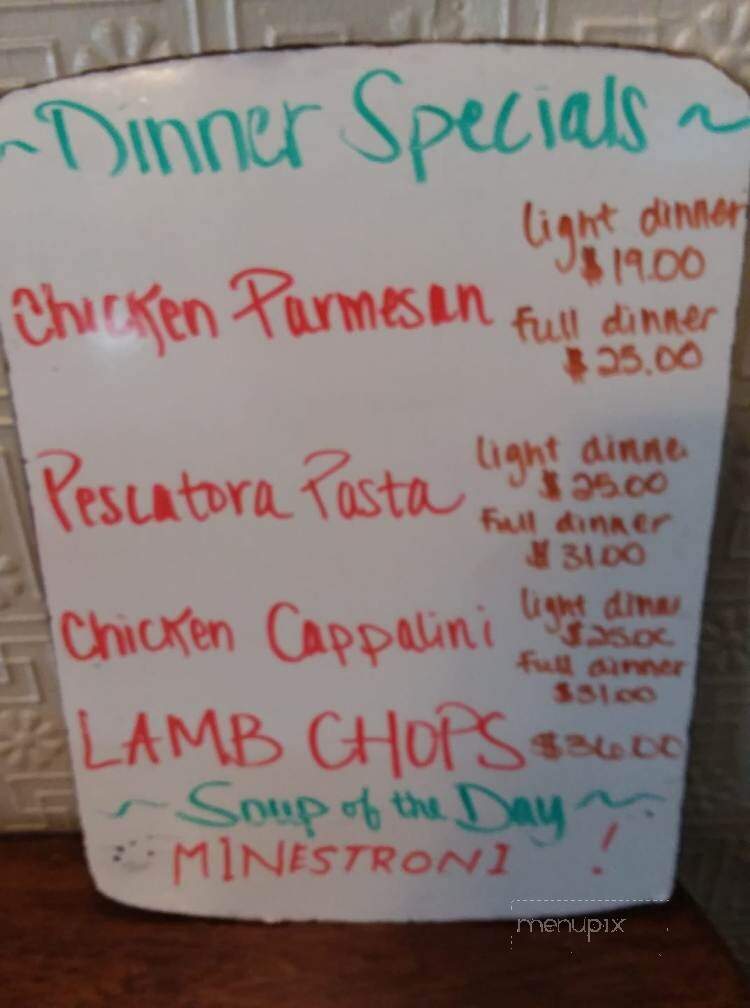 ~Dinner Specials~
light dinner
$19.00
Chicken Parmesan
full dinner
$25.00
light dinne
Pescatora Pasta
$25.00
full dinner
$31.00
Chicken Cappalini
light dinne
$25.00
full dinner
$31.00
LAMB CHOPS $36.00
~Soup of the Day~
MINESTRONI !
menupix